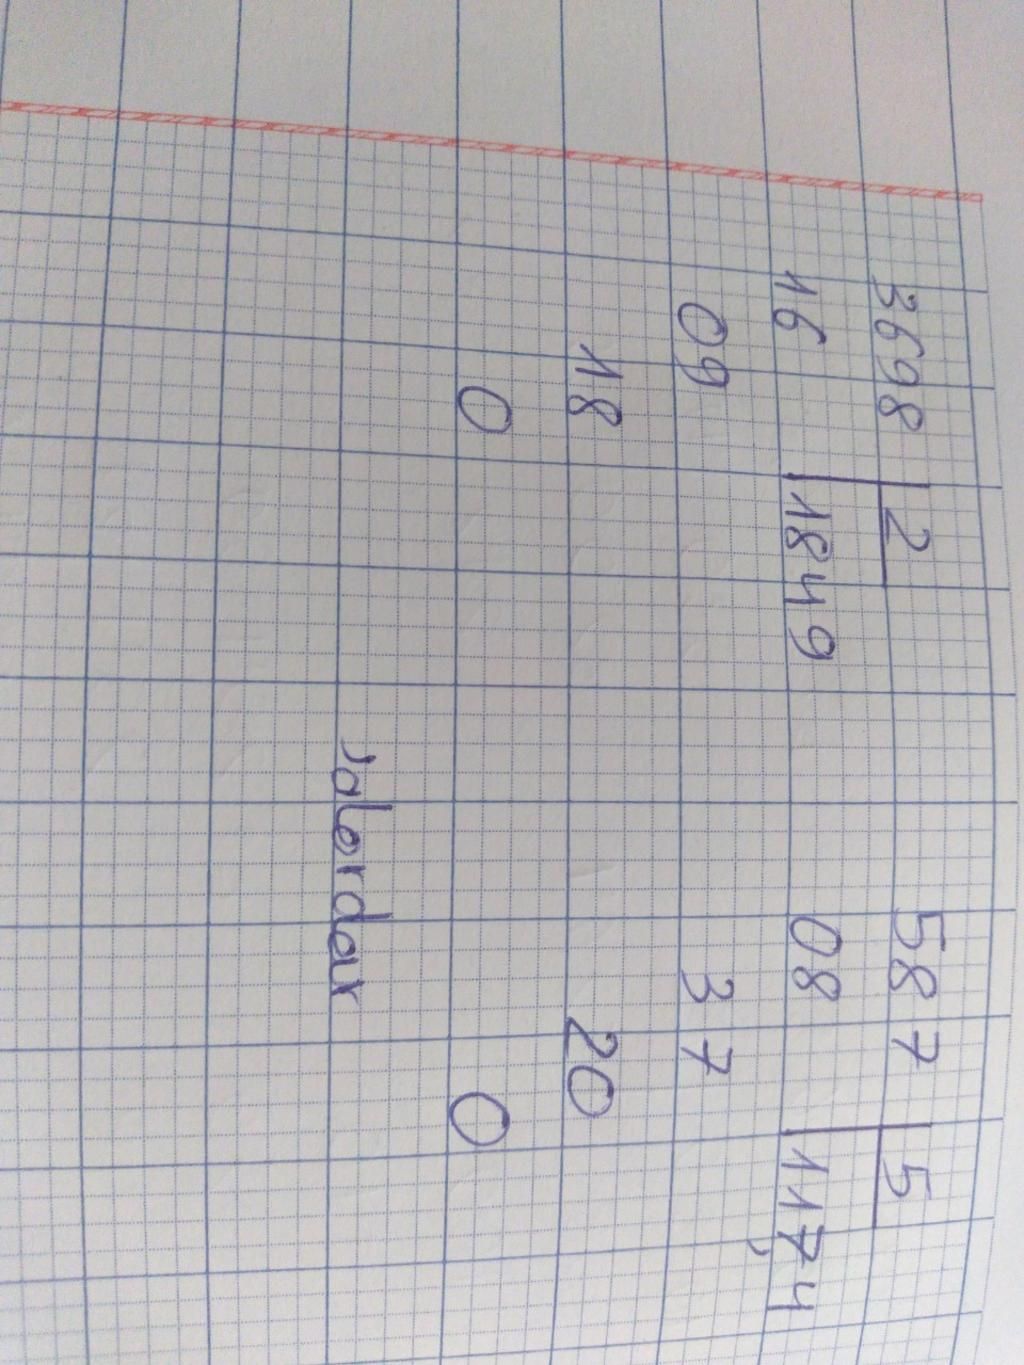 3698 2 587 5
16 1849 08 117,4
09 37
18 20
0 0